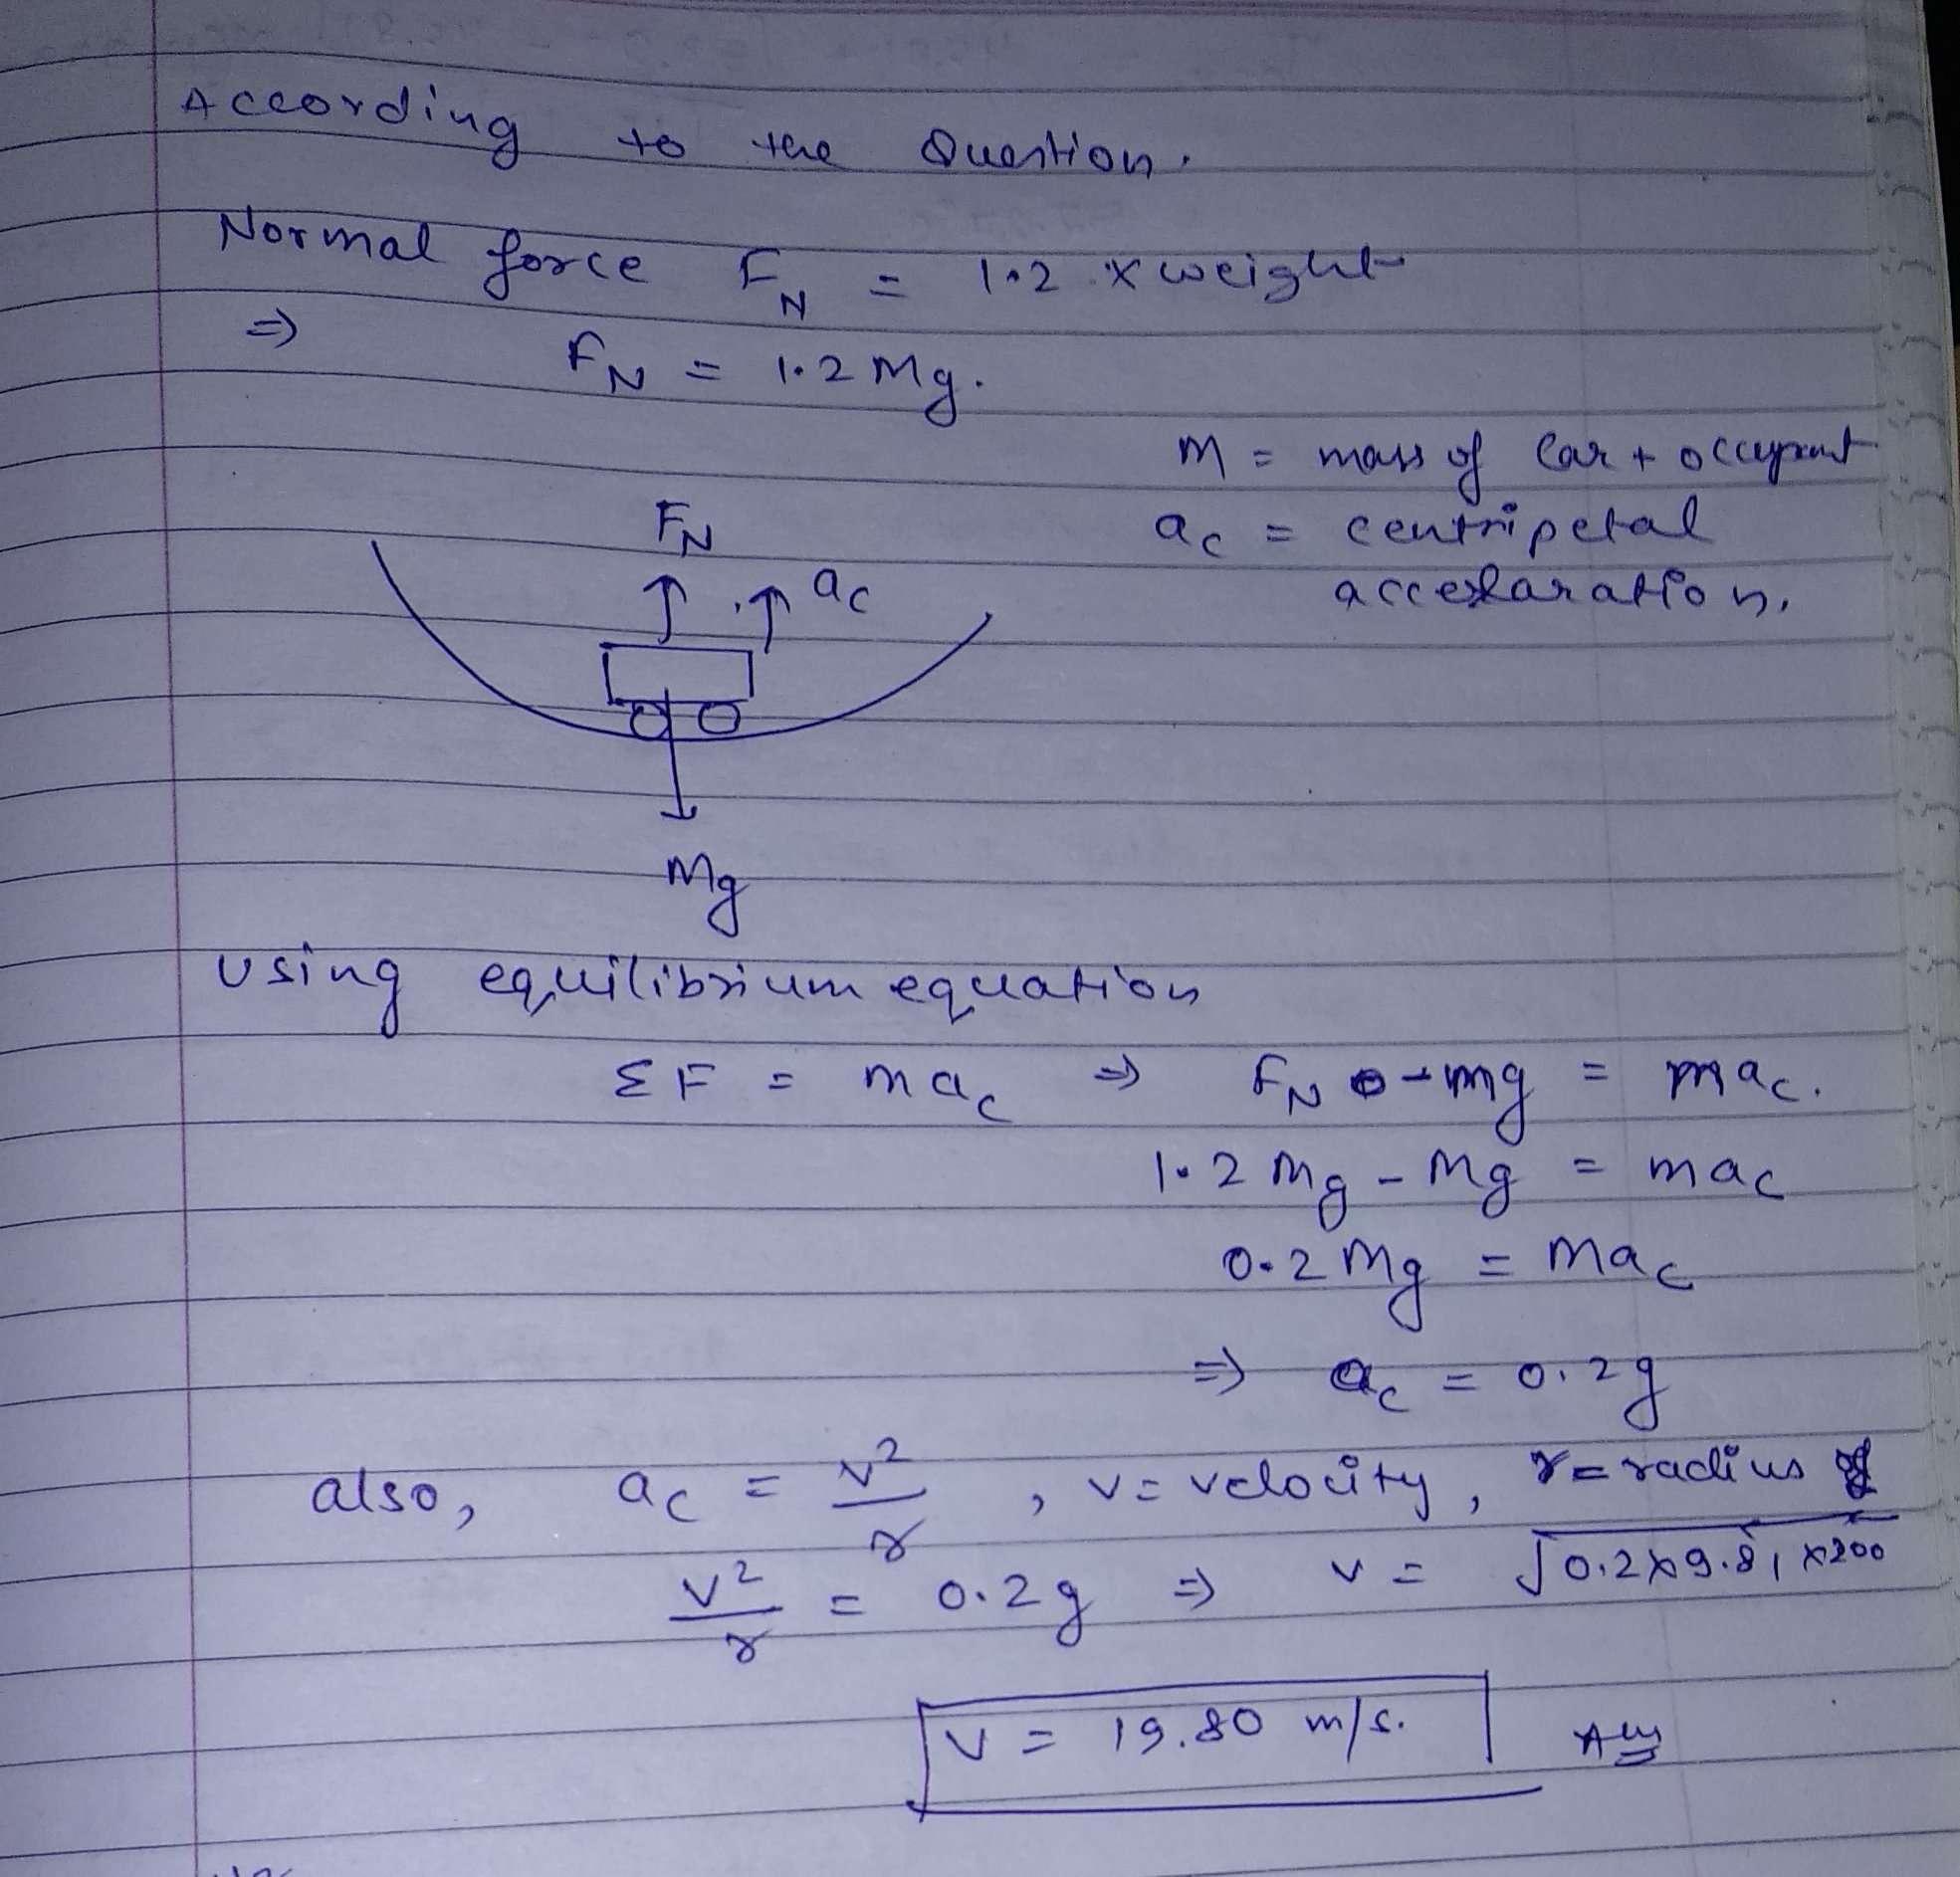 According to the Question.
Normal force F_N = 1.2 x weight
⇒ F_N = 1.2 Mg.
M = mass of Car + occupant
a_c = centripetal
F_N
a_c
Mg
Using equilibrium equation
ΣF = ma_c ⇒ F_N - mg = ma_c.
1.2 Mg - Mg = ma_c
0.2 Mg = Ma_c
⇒ a_c = 0.2g
also, a_c = v²/r , v = velocity, r = radius of
v²/r = 0.2g ⇒ v = √0.2x9.81x200
V = 19.80 m/s. Ans